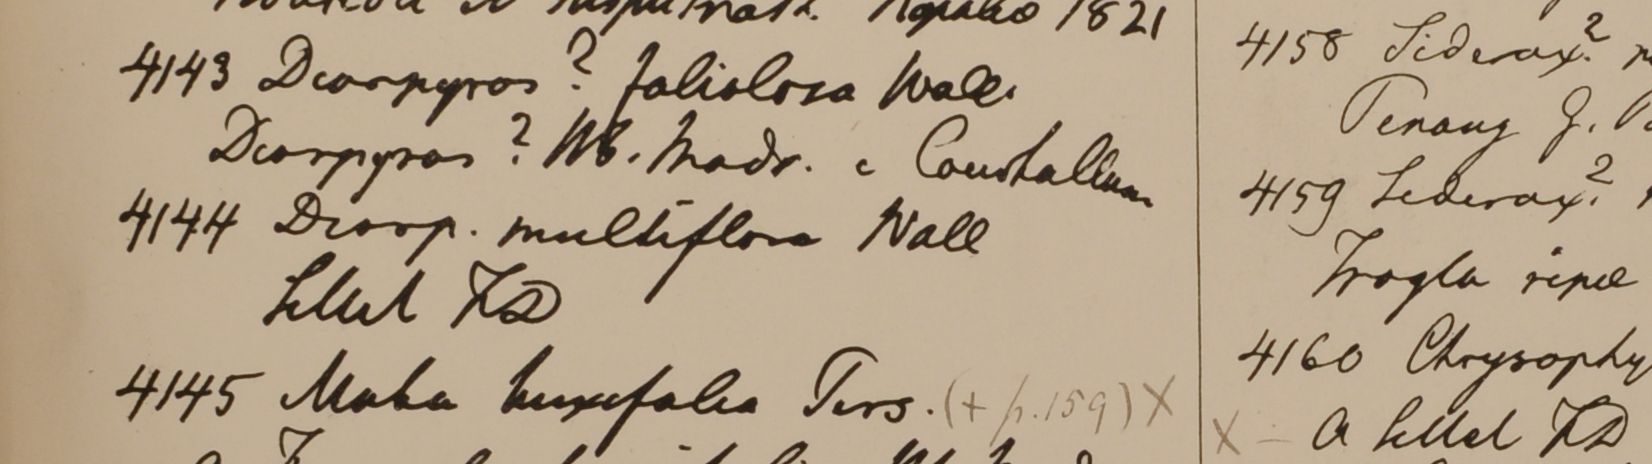 1821
4143 Diospyros ? foliolosa Wall.
Diospyros ? Hb. Madr. e Courtallum
4144 Diosp. multiflora Wall
Sillet FD
4145 Maba buxifolia Pers. (+ p. 159) X
4158 Siderox.?
Penang G.
4159 Siderox.?
Trogla ripæ
4160 Chrysophy
X – a Sillet FD